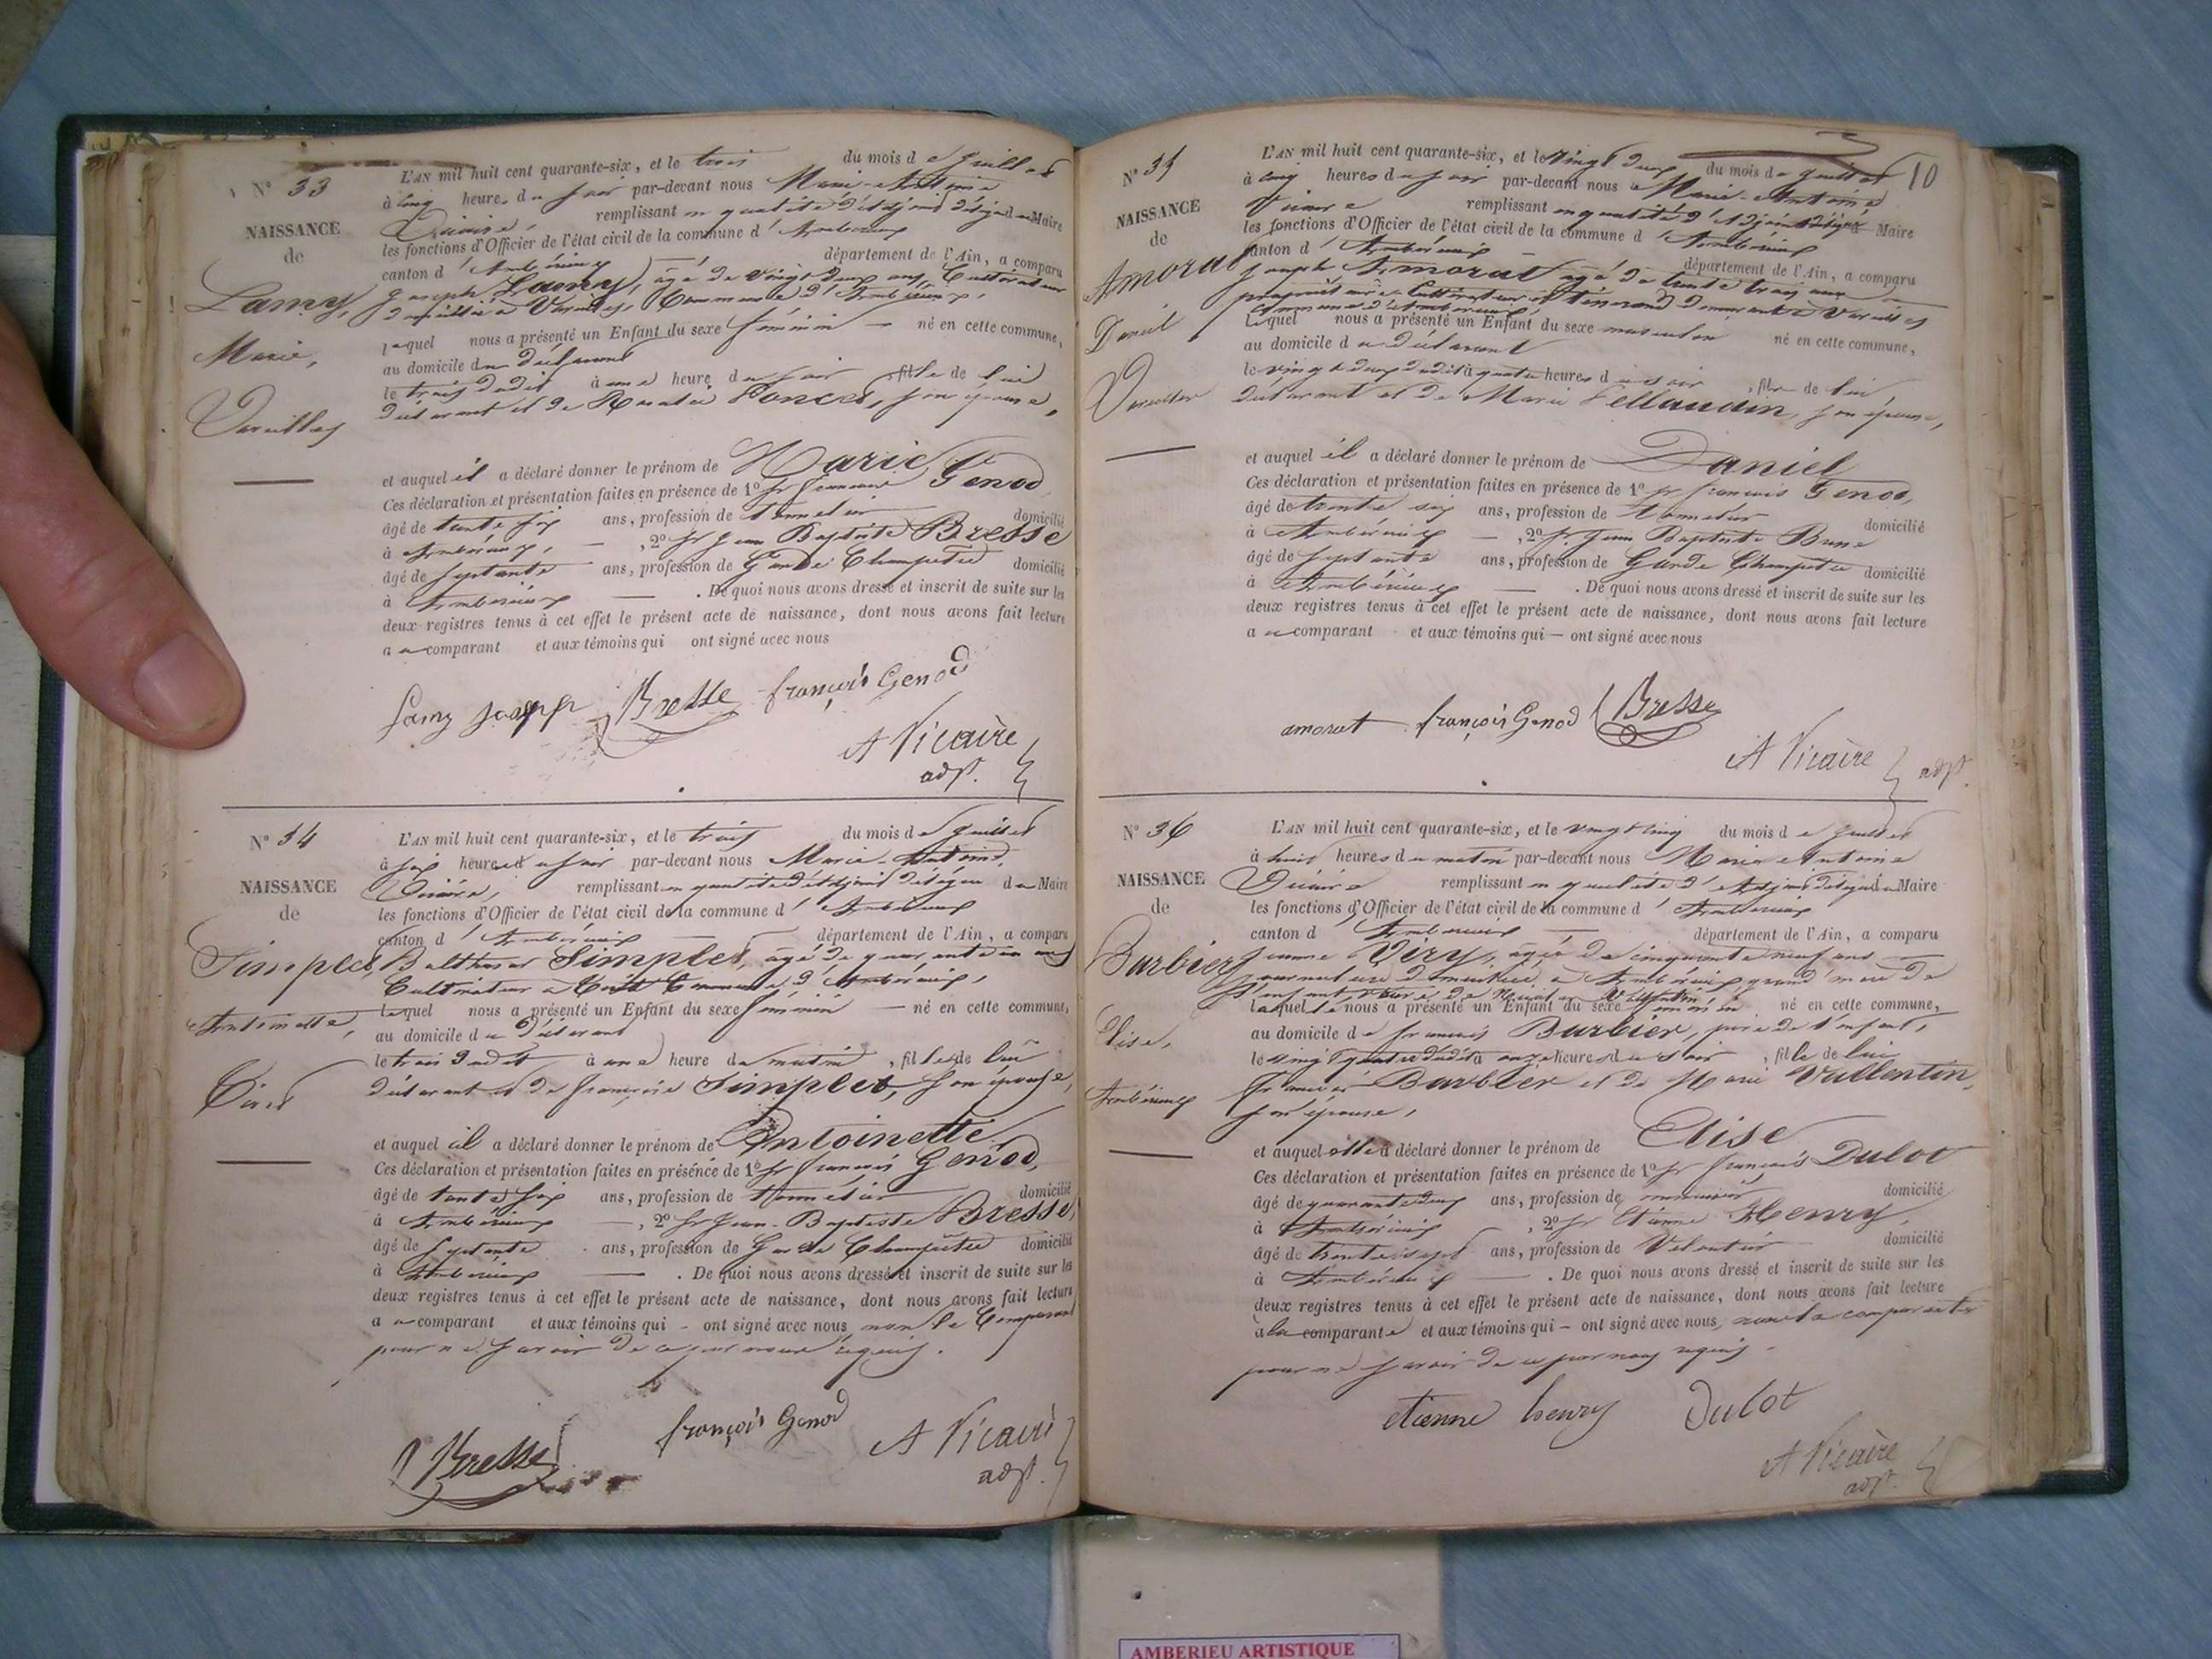 N° 33
NAISSANCE
de
Lamy,
Marie,
Vareilles
L'AN mil huit cent quarante-six, et le trois du mois de Juillet
à cinq heures du soir par-devant nous Marie-Antoine
Vicaire, remplissant en qualité d'adjoint délégué du Maire
les fonctions d'Officier de l'état civil de la commune d'Ambérieux
canton d'Ambérieux département de l'Ain, a comparu
Joseph Lamy, âgé de vingt deux ans, Cultivateur
domicilié à Vareilles, Commune d'Ambérieux,
lequel nous a présenté un Enfant du sexe féminin né en cette commune,
au domicile du déclarant
le trois dudit à une heure du soir, fille de lui
déclarant et de Poncet, son épouse,
et auquel il a déclaré donner le prénom de Marie
Ces déclaration et présentation faites en présence de 1° sr françois Genod,
âgé de trente six ans, profession de tonnelier domicilié
à Ambérieux, 2° sr Jean Baptiste Bresse
âgé de septante ans, profession de Garde Champêtre domicilié
à Ambérieux. De quoi nous avons dressé et inscrit de suite sur les
deux registres tenus à cet effet le présent acte de naissance, dont nous avons fait lecture
au comparant et aux témoins qui ont signé avec nous
Lamy Joseph Bresse françois Genod
A Vicaire
adjt.
N° 34
NAISSANCE
de
Simplet,
Antoinette,
L'AN mil huit cent quarante-six, et le trois du mois de Juillet
à six heures du soir par-devant nous Marie-Antoine
Vicaire, remplissant en qualité d'adjoint délégué du Maire
les fonctions d'Officier de l'état civil de la commune d'Ambérieux
canton d'Ambérieux département de l'Ain, a comparu
Balthasar Simplet, âgé de quarante un ans
Cultivateur à Commune d'Ambérieux,
lequel nous a présenté un Enfant du sexe féminin né en cette commune,
au domicile du Déclarant
le trois dudit à une heure du matin, fille de lui
déclarant et de françoise Simplet, son épouse,
et auquel il a déclaré donner le prénom de Antoinette
Ces déclaration et présentation faites en présence de 1° sr françois Genod,
âgé de trente six ans, profession de tonnelier domicilié
à Ambérieux, 2° sr Jean-Baptiste Bresse,
âgé de septante ans, profession de Garde Champêtre domicilié
à Ambérieux. De quoi nous avons dressé et inscrit de suite sur les
deux registres tenus à cet effet le présent acte de naissance, dont nous avons fait lecture
au comparant et aux témoins qui ont signé avec nous, non le Comparant
pour ne savoir de ce par nous requis.
Bresse françois Genod A Vicaire
adjt.
10
N° 35
NAISSANCE
de
Amorat
Daniel
Vareilles
L'AN mil huit cent quarante-six, et le vingt deux du mois de Juillet
à cinq heures du soir par-devant nous Marie-Antoine
Vicaire remplissant en qualité d'adjoint délégué du Maire
les fonctions d'Officier de l'état civil de la commune d'Ambérieux
canton d'Ambérieux département de l'Ain, a comparu
Joseph Amorat âgé de trente trois ans
propriétaire Cultivateur demeurant à Vareilles
Commune d'Ambérieux
lequel nous a présenté un Enfant du sexe masculin né en cette commune,
au domicile du déclarant
le vingt deux dudit à quatre heures du soir, fils de lui,
déclarant et de Marie Pellaudin, son épouse,
et auquel il a déclaré donner le prénom de Daniel
Ces déclaration et présentation faites en présence de 1° sr françois Genod,
âgé de trente six ans, profession de tonnelier domicilié
à Ambérieux, 2° sr Jean Baptiste Bresse
âgé de septante ans, profession de Garde Champêtre domicilié
à Ambérieux. De quoi nous avons dressé et inscrit de suite sur les
deux registres tenus à cet effet le présent acte de naissance, dont nous avons fait lecture
au comparant et aux témoins qui ont signé avec nous
amorat françois Genod Bresse
A Vicaire adjt.
N° 36
NAISSANCE
de
Barbier
Elise,
Ambérieux
L'AN mil huit cent quarante-six, et le vingt cinq du mois de Juillet
à huit heures du matin par-devant nous Marie Antoine
Vicaire remplissant en qualité d'adjoint délégué du Maire
les fonctions d'Officier de l'état civil de la commune d'Ambérieux
canton d'Ambérieux département de l'Ain, a comparu
Jeanne Viry, âgée de cinquante neuf ans
journalière domiciliée à Ambérieux grand'mère de
l'enfant, veuve de Vallentin
laquelle nous a présenté un Enfant du sexe féminin né en cette commune,
au domicile de françois Barbier, père de l'enfant,
le vingt quatre dudit à onze heures du soir, fille de lui
françois Barbier et de Marie Vallentin,
son épouse,
et auquel elle a déclaré donner le prénom de Elise
Ces déclaration et présentation faites en présence de 1° sr françois Dulot
âgé de quarante deux ans, profession de menuisier domicilié
à Ambérieux, 2° sr Etienne Henry,
âgé de trente sept ans, profession de Veloutier domicilié
à Ambérieux. De quoi nous avons dressé et inscrit de suite sur les
deux registres tenus à cet effet le présent acte de naissance, dont nous avons fait lecture
à la comparante et aux témoins qui ont signé avec nous, non la comparante
pour ne savoir de ce par nous requis.
etienne henry Dulot
A Vicaire
adjt.
AMBERIEU ARTISTIQUE